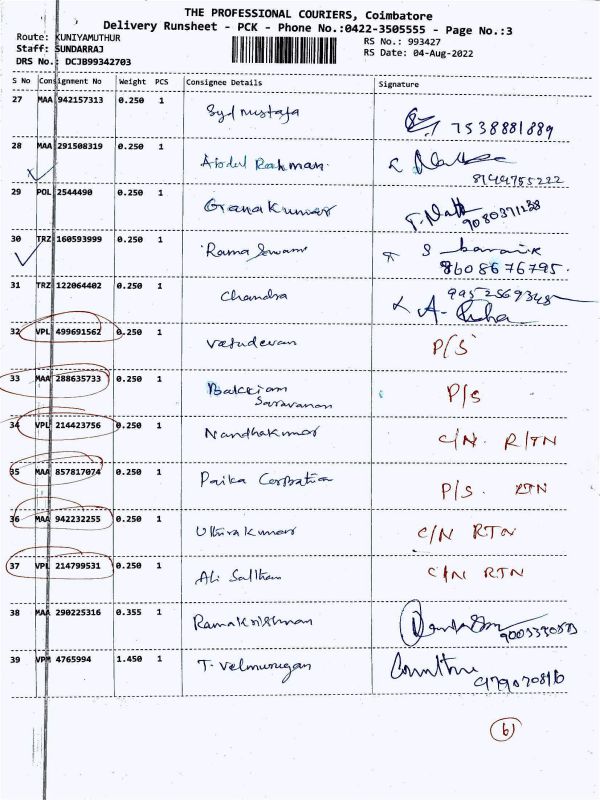 THE PROFESSIONAL COURIERS, Coimbatore
Delivery Runsheet - PCK - Phone No.:0422-3505555 - Page No.:3
Route: KUNIYAMUTHUR
RS No.: 993427
Staff: SUNDARRAJ
RS Date: 04-Aug-2022
DRS No.: DCJB99342703
S No Consignment No Weight PCS Consignee Details Signature
27 MAA 942157313 0.250 1 Syd mustafa
7538881889
28 MAA 291508319 0.250 1 Abdul Rahman.
8144755222
29 POL 2544490 0.250 1 Gnanakumar T. Nath
9080371138
30 TRZ 160593999 0.250 1 Rama Swami
8608676795.
31 TRZ 122064402 0.250 1 Chandra
9952569348
32 VPL 499691562 0.250 1 Vasudevan P/S
33 MAA 288635733 0.250 1 Bakkiam P/S
Saravanan
34 VPL 214423756 0.250 1 Nandhakumar C/N. R/TN
35 MAA 857817074 0.250 1 Paika P/S. RTN
36 MAA 942232255 0.250 1 Uthirakumar C/N RTN
37 VPL 214799531 0.250 1 Ali Sulthan C/N RTN
38 MAA 290225316 0.355 1 Ramakrishnan
39 VPM 4765994 1.450 1 T. Velmurugan
6)